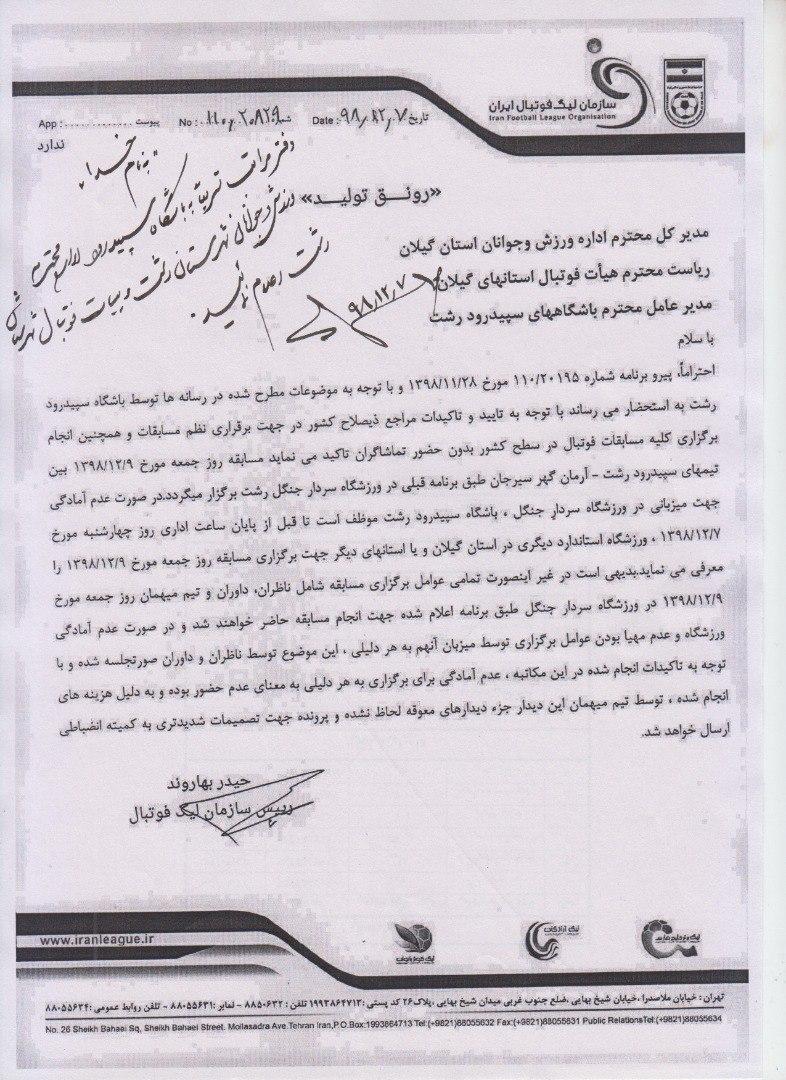 سازمان لیگ فوتبال ایران
Iran Football League Organisation
تاریخ Date : ۹۸٫۱۲٫۷
شماره No : ۱۱۰٫۲۰۸۲۹
پیوست App : ..............
ندارد
"بنام خدا"
دفتر
مراتب
سپیدرود
ورزش و جوانان شهرستان رشت و هیات فوتبال شهرستان
رشت اعلام
۹۸٫۱۲٫۷
«رونــق تولیـد»
مدیر کل محترم اداره ورزش وجوانان استان گیلان
ریاست محترم هیأت فوتبال استانهای گیلان
مدیر عامل محترم باشگاههای سپیدرود رشت
با سلام
احتراماً، پیرو برنامه شماره ۱۱۰/۲۰۱۹۵ مورخ ۱۳۹۸/۱۱/۲۸ و با توجه به موضوعات مطرح شده در رسانه ها توسط باشگاه سپیدرود
رشت به استحضار می رساند با توجه به تایید و تاکیدات مراجع ذیصلاح کشور در جهت برقراری نظم مسابقات و همچنین انجام
برگزاری کلیه مسابقات فوتبال در سطح کشور بدون حضور تماشاگران تاکید می نماید مسابقه روز جمعه مورخ ۱۳۹۸/۱۲/۹ بین
تیمهای سپیدرود رشت - آرمان گهر سیرجان طبق برنامه قبلی در ورزشگاه سردار جنگل رشت برگزار میگردد.در صورت عدم آمادگی
جهت میزبانی در ورزشگاه سردار جنگل ، باشگاه سپیدرود رشت موظف است تا قبل از پایان ساعت اداری روز چهارشنبه مورخ
۱۳۹۸/۱۲/۷ ، ورزشگاه استاندارد دیگری در استان گیلان و یا استانهای دیگر جهت برگزاری مسابقه روز جمعه مورخ ۱۳۹۸/۱۲/۹ را
معرفی می نماید.بدیهی است در غیر اینصورت تمامی عوامل برگزاری مسابقه شامل ناظران، داوران و تیم میهمان روز جمعه مورخ
۱۳۹۸/۱۲/۹ در ورزشگاه سردار جنگل طبق برنامه اعلام شده جهت انجام مسابقه حاضر خواهند شد و در صورت عدم آمادگی
ورزشگاه و عدم مهیا بودن عوامل برگزاری توسط میزبان آنهم به هر دلیلی ، این موضوع توسط ناظران و داوران صورتجلسه شده و با
توجه به تاکیدات انجام شده در این مکاتبه ، عدم آمادگی برای برگزاری به هر دلیلی به معنای عدم حضور بوده و به دلیل هزینه های
انجام شده ، توسط تیم میهمان این دیدار جزء دیدارهای معوقه لحاظ نشده و پرونده جهت تصمیمات شدیدتری به کمیته انضباطی
ارسال خواهد شد.
حیدر بهاروند
رییس سازمان لیگ فوتبال
www.iranleague.ir
تهران : خیابان ملاصدرا ،خیابان شیخ بهایی ،ضلع جنوب غربی میدان شیخ بهایی ،پلاک۲۶ کد پستی :۱۹۹۳۸۶۴۷۱۳ تلفن : ۸۸۵۰۶۳۲ - نمابر :۸۸۰۵۵۶۳۱ - تلفن روابط عمومی :۸۸۰۵۵۶۳۴
No. 26 Sheikh Bahaei Sq, Sheikh Bahaei Street. Mollasadra Ave.Tehran Iran,P.O.Box:1993864713 Tel:(+9821)88055632 Fax:(+9821)88055631 Public RelationsTel:(+9821)88055634